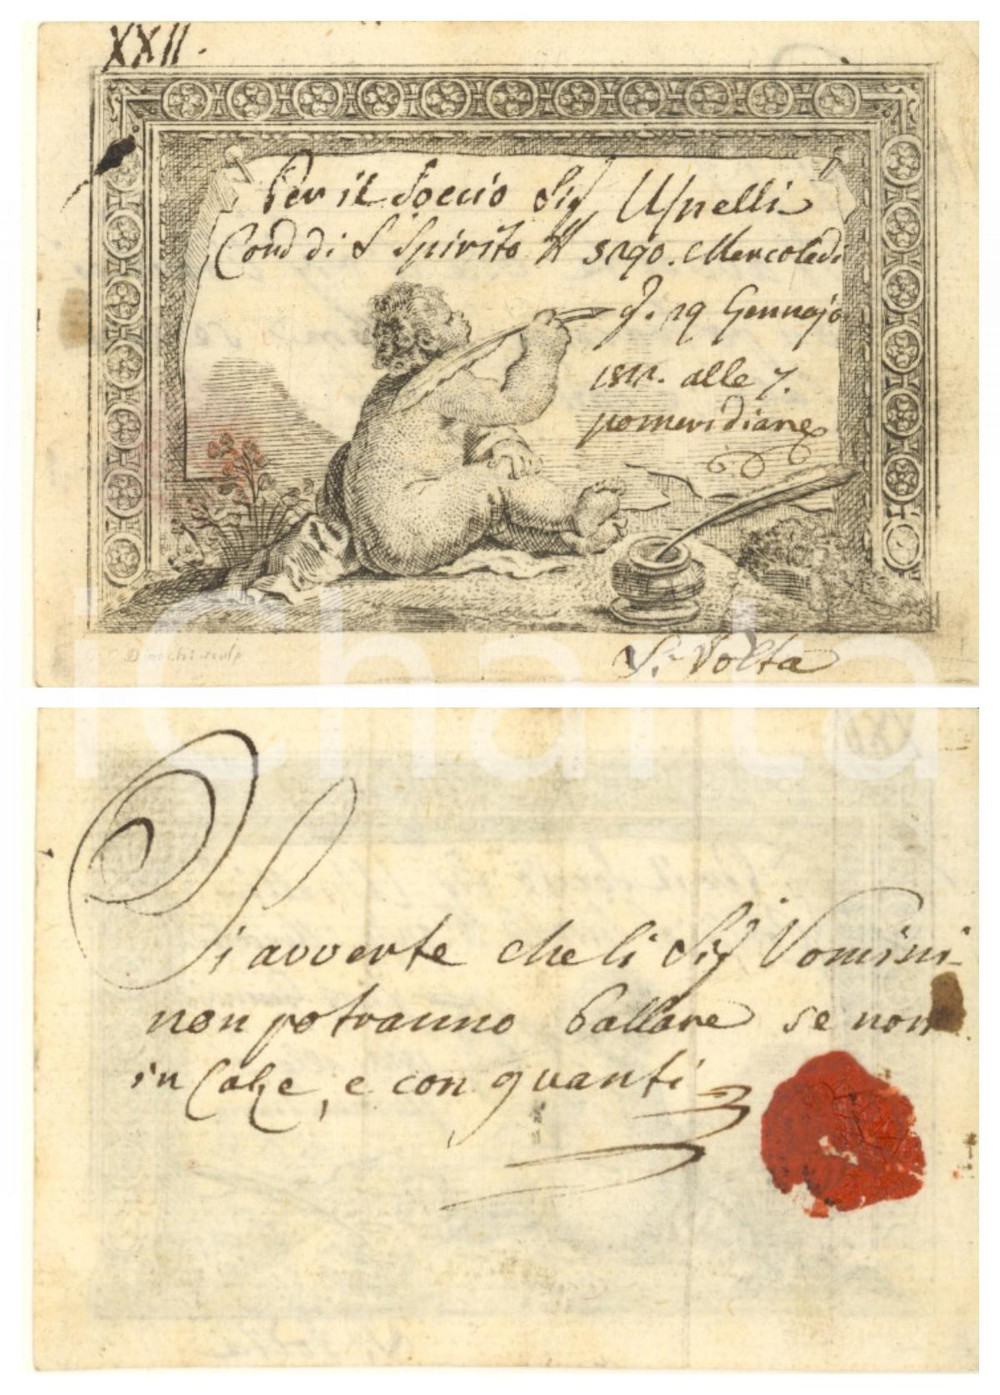 XXII.
Per il Soccio Sig
Cond di S Spirito N 5290. Mercoledi
g. 29 Gennajo
1811. alle 7.
pomeridiane
S. Volta
iCharta
Si avverte che li Sig Vomini
non potranno ballare se non
in Calze, e con guanti